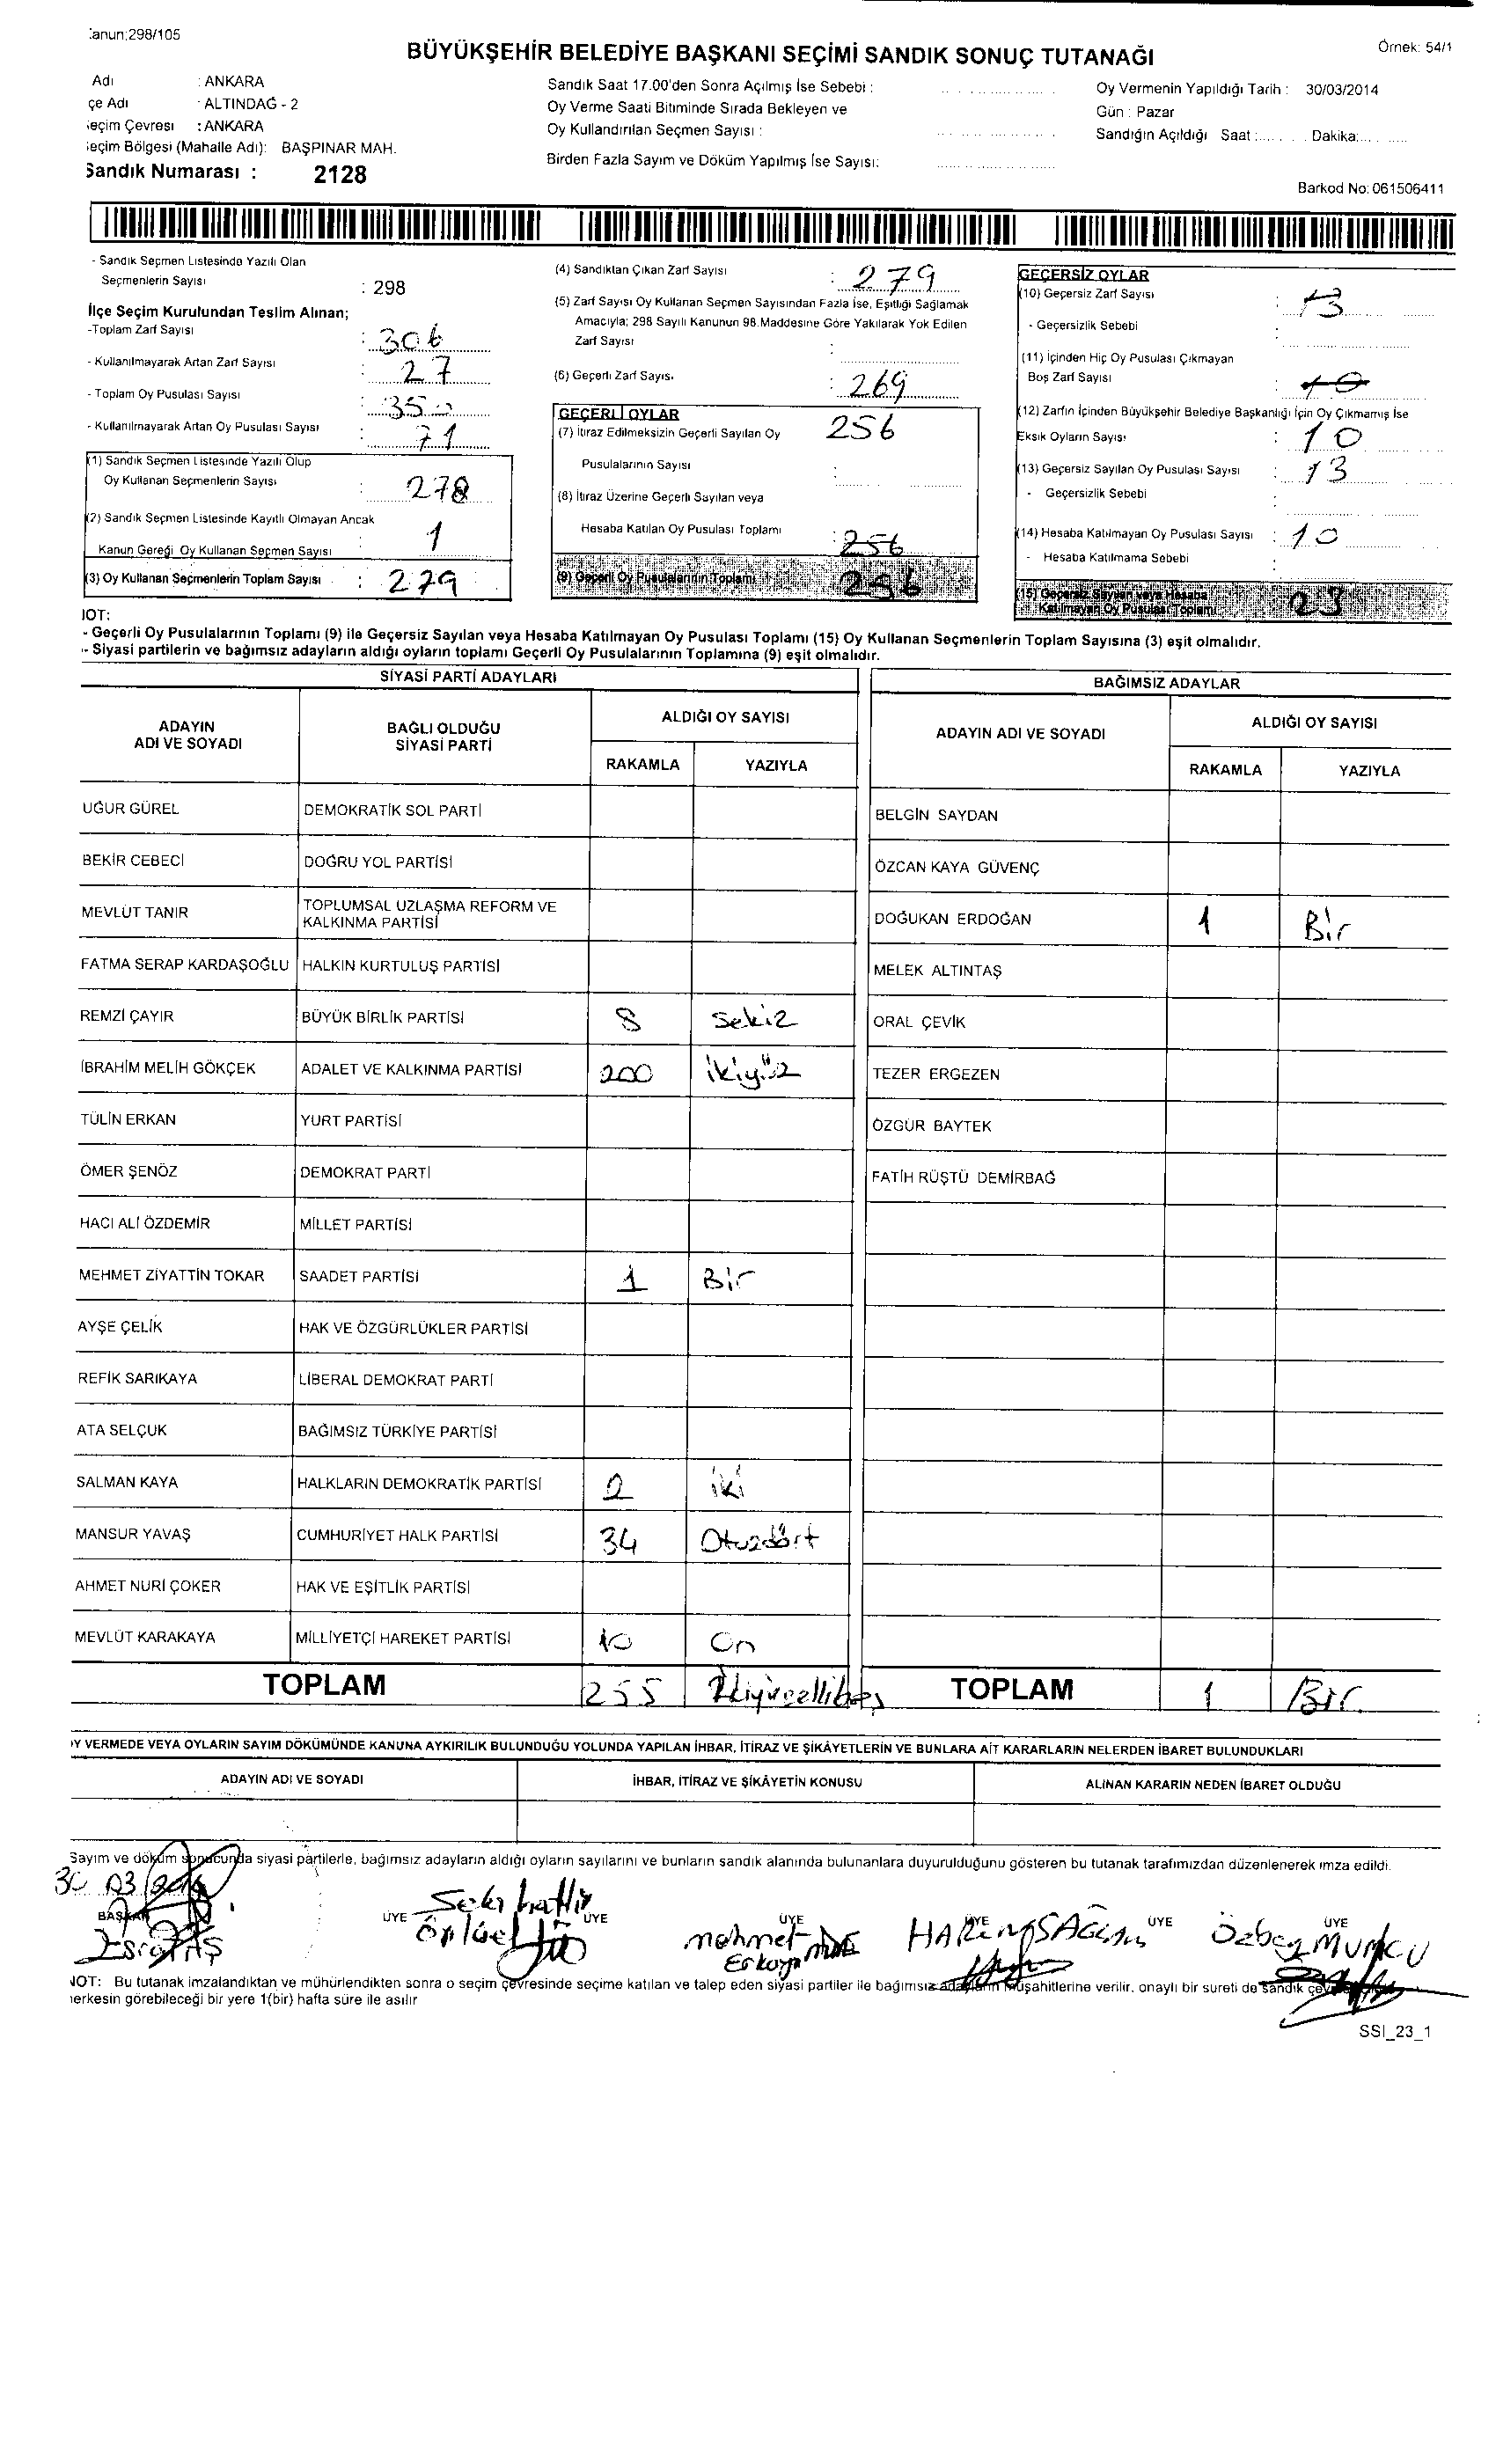 anun:298/105
BÜYÜKŞEHİR BELEDİYE BAŞKANI SEÇİMİ SANDIK SONUÇ TUTANAĞI
Örnek: 54/1
Adı : ANKARA
çe Adı : ALTINDAĞ - 2
eçim Çevresi : ANKARA
eçim Bölgesi (Mahalle Adı): BAŞPINAR MAH.
Sandık Numarası : 2128
Sandık Saat 17.00'den Sonra Açılmış İse Sebebi :
Oy Verme Saati Bitiminde Sırada Bekleyen ve
Oy Kullandırılan Seçmen Sayısı :
Birden Fazla Sayım ve Döküm Yapılmış İse Sayısı:
Oy Vermenin Yapıldığı Tarih : 30/03/2014
Gün : Pazar
Sandığın Açıldığı Saat :....... Dakika:..........
Barkod No: 061506411
- Sandık Seçmen Listesinde Yazılı Olan
Seçmenlerin Sayısı : 298
İlçe Seçim Kurulundan Teslim Alınan;
-Toplam Zarf Sayısı : 306
- Kullanılmayarak Artan Zarf Sayısı : 27
- Toplam Oy Pusulası Sayısı : 350
- Kullanılmayarak Artan Oy Pusulası Sayısı : 71
(1) Sandık Seçmen Listesinde Yazılı Olup
Oy Kullanan Seçmenlerin Sayısı : 278
(2) Sandık Seçmen Listesinde Kayıtlı Olmayan Ancak
Kanun Gereği Oy Kullanan Seçmen Sayısı : 1
(3) Oy Kullanan Seçmenlerin Toplam Sayısı : 279
(4) Sandıktan Çıkan Zarf Sayısı : 279
(5) Zarf Sayısı Oy Kullanan Seçmen Sayısından Fazla İse, Eşitliği Sağlamak
Amacıyla; 298 Sayılı Kanunun 98.Maddesine Göre Yakılarak Yok Edilen
Zarf Sayısı :
(6) Geçerli Zarf Sayısı : 269
GEÇERLİ OYLAR
(7) İtiraz Edilmeksizin Geçerli Sayılan Oy 256
Pusulalarının Sayısı :
(8) İtiraz Üzerine Geçerli Sayılan veya
Hesaba Katılan Oy Pusulası Toplamı : 256
(9) Geçerli Oy Pusulalarının Toplamı : 256
GEÇERSİZ OYLAR
(10) Geçersiz Zarf Sayısı : 13
- Geçersizlik Sebebi :
(11) İçinden Hiç Oy Pusulası Çıkmayan
Boş Zarf Sayısı : 10
(12) Zarfın İçinden Büyükşehir Belediye Başkanlığı İçin Oy Çıkmamış İse
Eksik Oyların Sayısı : 10
(13) Geçersiz Sayılan Oy Pusulası Sayısı : 13
- Geçersizlik Sebebi :
(14) Hesaba Katılmayan Oy Pusulası Sayısı : 10
- Hesaba Katılmama Sebebi :
(15) Geçersiz Sayılan veya Hesaba
Katılmayan Oy Pusulası Toplamı : 23
NOT:
- Geçerli Oy Pusulalarının Toplamı (9) ile Geçersiz Sayılan veya Hesaba Katılmayan Oy Pusulası Toplamı (15) Oy Kullanan Seçmenlerin Toplam Sayısına (3) eşit olmalıdır.
- Siyasi partilerin ve bağımsız adayların aldığı oyların toplamı Geçerli Oy Pusulalarının Toplamına (9) eşit olmalıdır.
SİYASİ PARTİ ADAYLARI
ADAYIN ADI VE SOYADI
BAĞLI OLDUĞU SİYASİ PARTİ
ALDIĞI OY SAYISI
RAKAMLA YAZIYLA
UĞUR GÜREL DEMOKRATİK SOL PARTİ
BEKİR CEBECİ DOĞRU YOL PARTİSİ
MEVLÜT TANIR TOPLUMSAL UZLAŞMA REFORM VE KALKINMA PARTİSİ
FATMA SERAP KARDAŞOĞLU HALKIN KURTULUŞ PARTİSİ
REMZİ ÇAYIR BÜYÜK BİRLİK PARTİSİ 8 Sekiz
İBRAHİM MELİH GÖKÇEK ADALET VE KALKINMA PARTİSİ 200 ikiyüz
TÜLİN ERKAN YURT PARTİSİ
ÖMER ŞENÖZ DEMOKRAT PARTİ
HACI ALİ ÖZDEMİR MİLLET PARTİSİ
MEHMET ZİYATTİN TOKAR SAADET PARTİSİ 1 Bir
AYŞE ÇELİK HAK VE ÖZGÜRLÜKLER PARTİSİ
REFİK SARIKAYA LİBERAL DEMOKRAT PARTİ
ATA SELÇUK BAĞIMSIZ TÜRKİYE PARTİSİ
SALMAN KAYA HALKLARIN DEMOKRATİK PARTİSİ 2 iki
MANSUR YAVAŞ CUMHURİYET HALK PARTİSİ 34 Otuzdört
AHMET NURİ ÇOKER HAK VE EŞİTLİK PARTİSİ
MEVLÜT KARAKAYA MİLLİYETÇİ HAREKET PARTİSİ 10 On
TOPLAM 255 İkiyüzellibeş
BAĞIMSIZ ADAYLAR
ADAYIN ADI VE SOYADI
ALDIĞI OY SAYISI
RAKAMLA YAZIYLA
BELGİN SAYDAN
ÖZCAN KAYA GÜVENÇ
DOĞUKAN ERDOĞAN 1 Bir
MELEK ALTINTAŞ
ORAL ÇEVİK
TEZER ERGEZEN
ÖZGÜR BAYTEK
FATİH RÜŞTÜ DEMİRBAĞ
TOPLAM 1 Bir
Y VERMEDE VEYA OYLARIN SAYIM DÖKÜMÜNDE KANUNA AYKIRILIK BULUNDUĞU YOLUNDA YAPILAN İHBAR, İTİRAZ VE ŞİKÂYETLERİN VE BUNLARA AİT KARARLARIN NELERDEN İBARET BULUNDUKLARI
ADAYIN ADI VE SOYADI
İHBAR, İTİRAZ VE ŞİKÂYETİN KONUSU
ALINAN KARARIN NEDEN İBARET OLDUĞU
Sayım ve döküm sonucunda siyasi partilerle, bağımsız adayların aldığı oyların sayılarını ve bunların sandık alanında bulunanlara duyurulduğunu gösteren bu tutanak tarafımızdan düzenlenerek imza edildi.
30 03
BAŞKAN ÜYE ÜYE ÜYE ÜYE ÜYE ÜYE
mehmet Özbey
NOT: Bu tutanak imzalandıktan ve mühürlendikten sonra o seçim çevresinde seçime katılan ve talep eden siyasi partiler ile bağımsız adayların müşahitlerine verilir. onaylı bir sureti de sandık
herkesin görebileceği bir yere 1(bir) hafta süre ile asılır
SSI_23_1